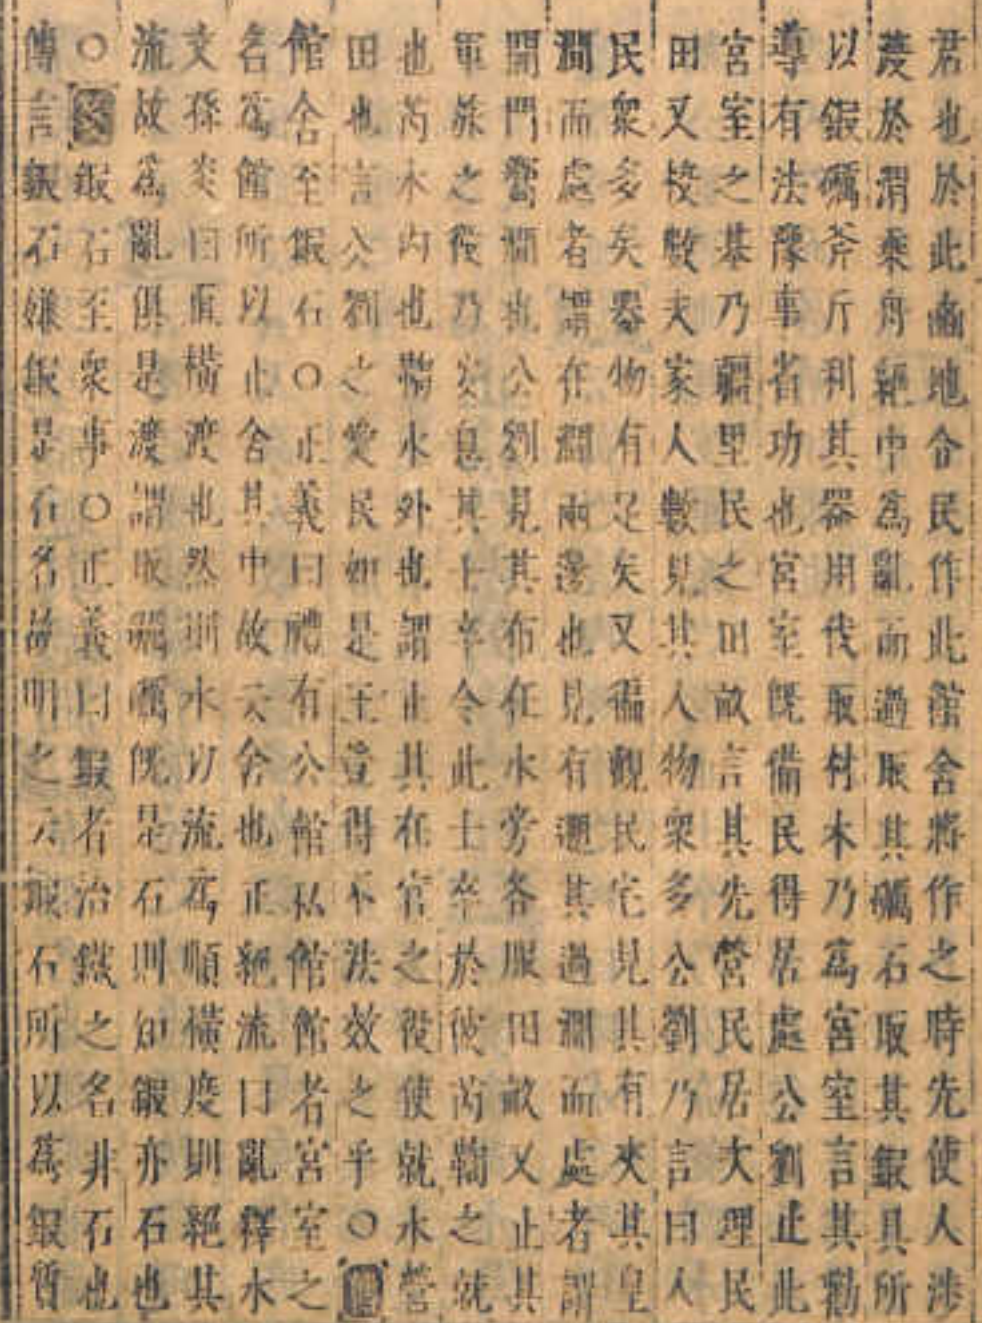 君也於此豳地令民作此館舍將作之時先使人涉
渡於渭乘舟絕中為亂而過取其礪石取其鍜具所
以鍜礪斧斤利其器用伐取材木乃為宮室言其勸
導有法豫事省功也宮室既備民得居處公劉止此
宮室之基乃疆理民之田畝言其先營民居大理民
田又校數夫家人數見其人物衆多公劉乃言曰人
民衆多矣器物有足矣又徧觀民宅見其有夾其皇
澗而處者謂在澗兩邊也見有遡其過澗而處者謂
開門嚮澗也公劉見其布在水旁各服田畝又止其
軍旅之役乃安息其士卒令此士卒於彼芮鞫之就
也芮水內也鞫水外也謂止其在官之役使就水營
田也言公劉之愛民如是王豈得不法效之乎○
館舍至鍜石○正義曰禮有公館私館館者宮室之
名為館所以止舍其中故云舍也正絕流曰亂釋水
文孫炎曰直橫渡也然則水以流為順橫度則絕其
流故為亂俱是渡謂取礪礪既是石則知鍜亦石也
○鍜石至衆事○正義曰鍜者治鐵之名非石也
傳言鍜石嫌鍜是石名故明之云鍜石所以為鍜質